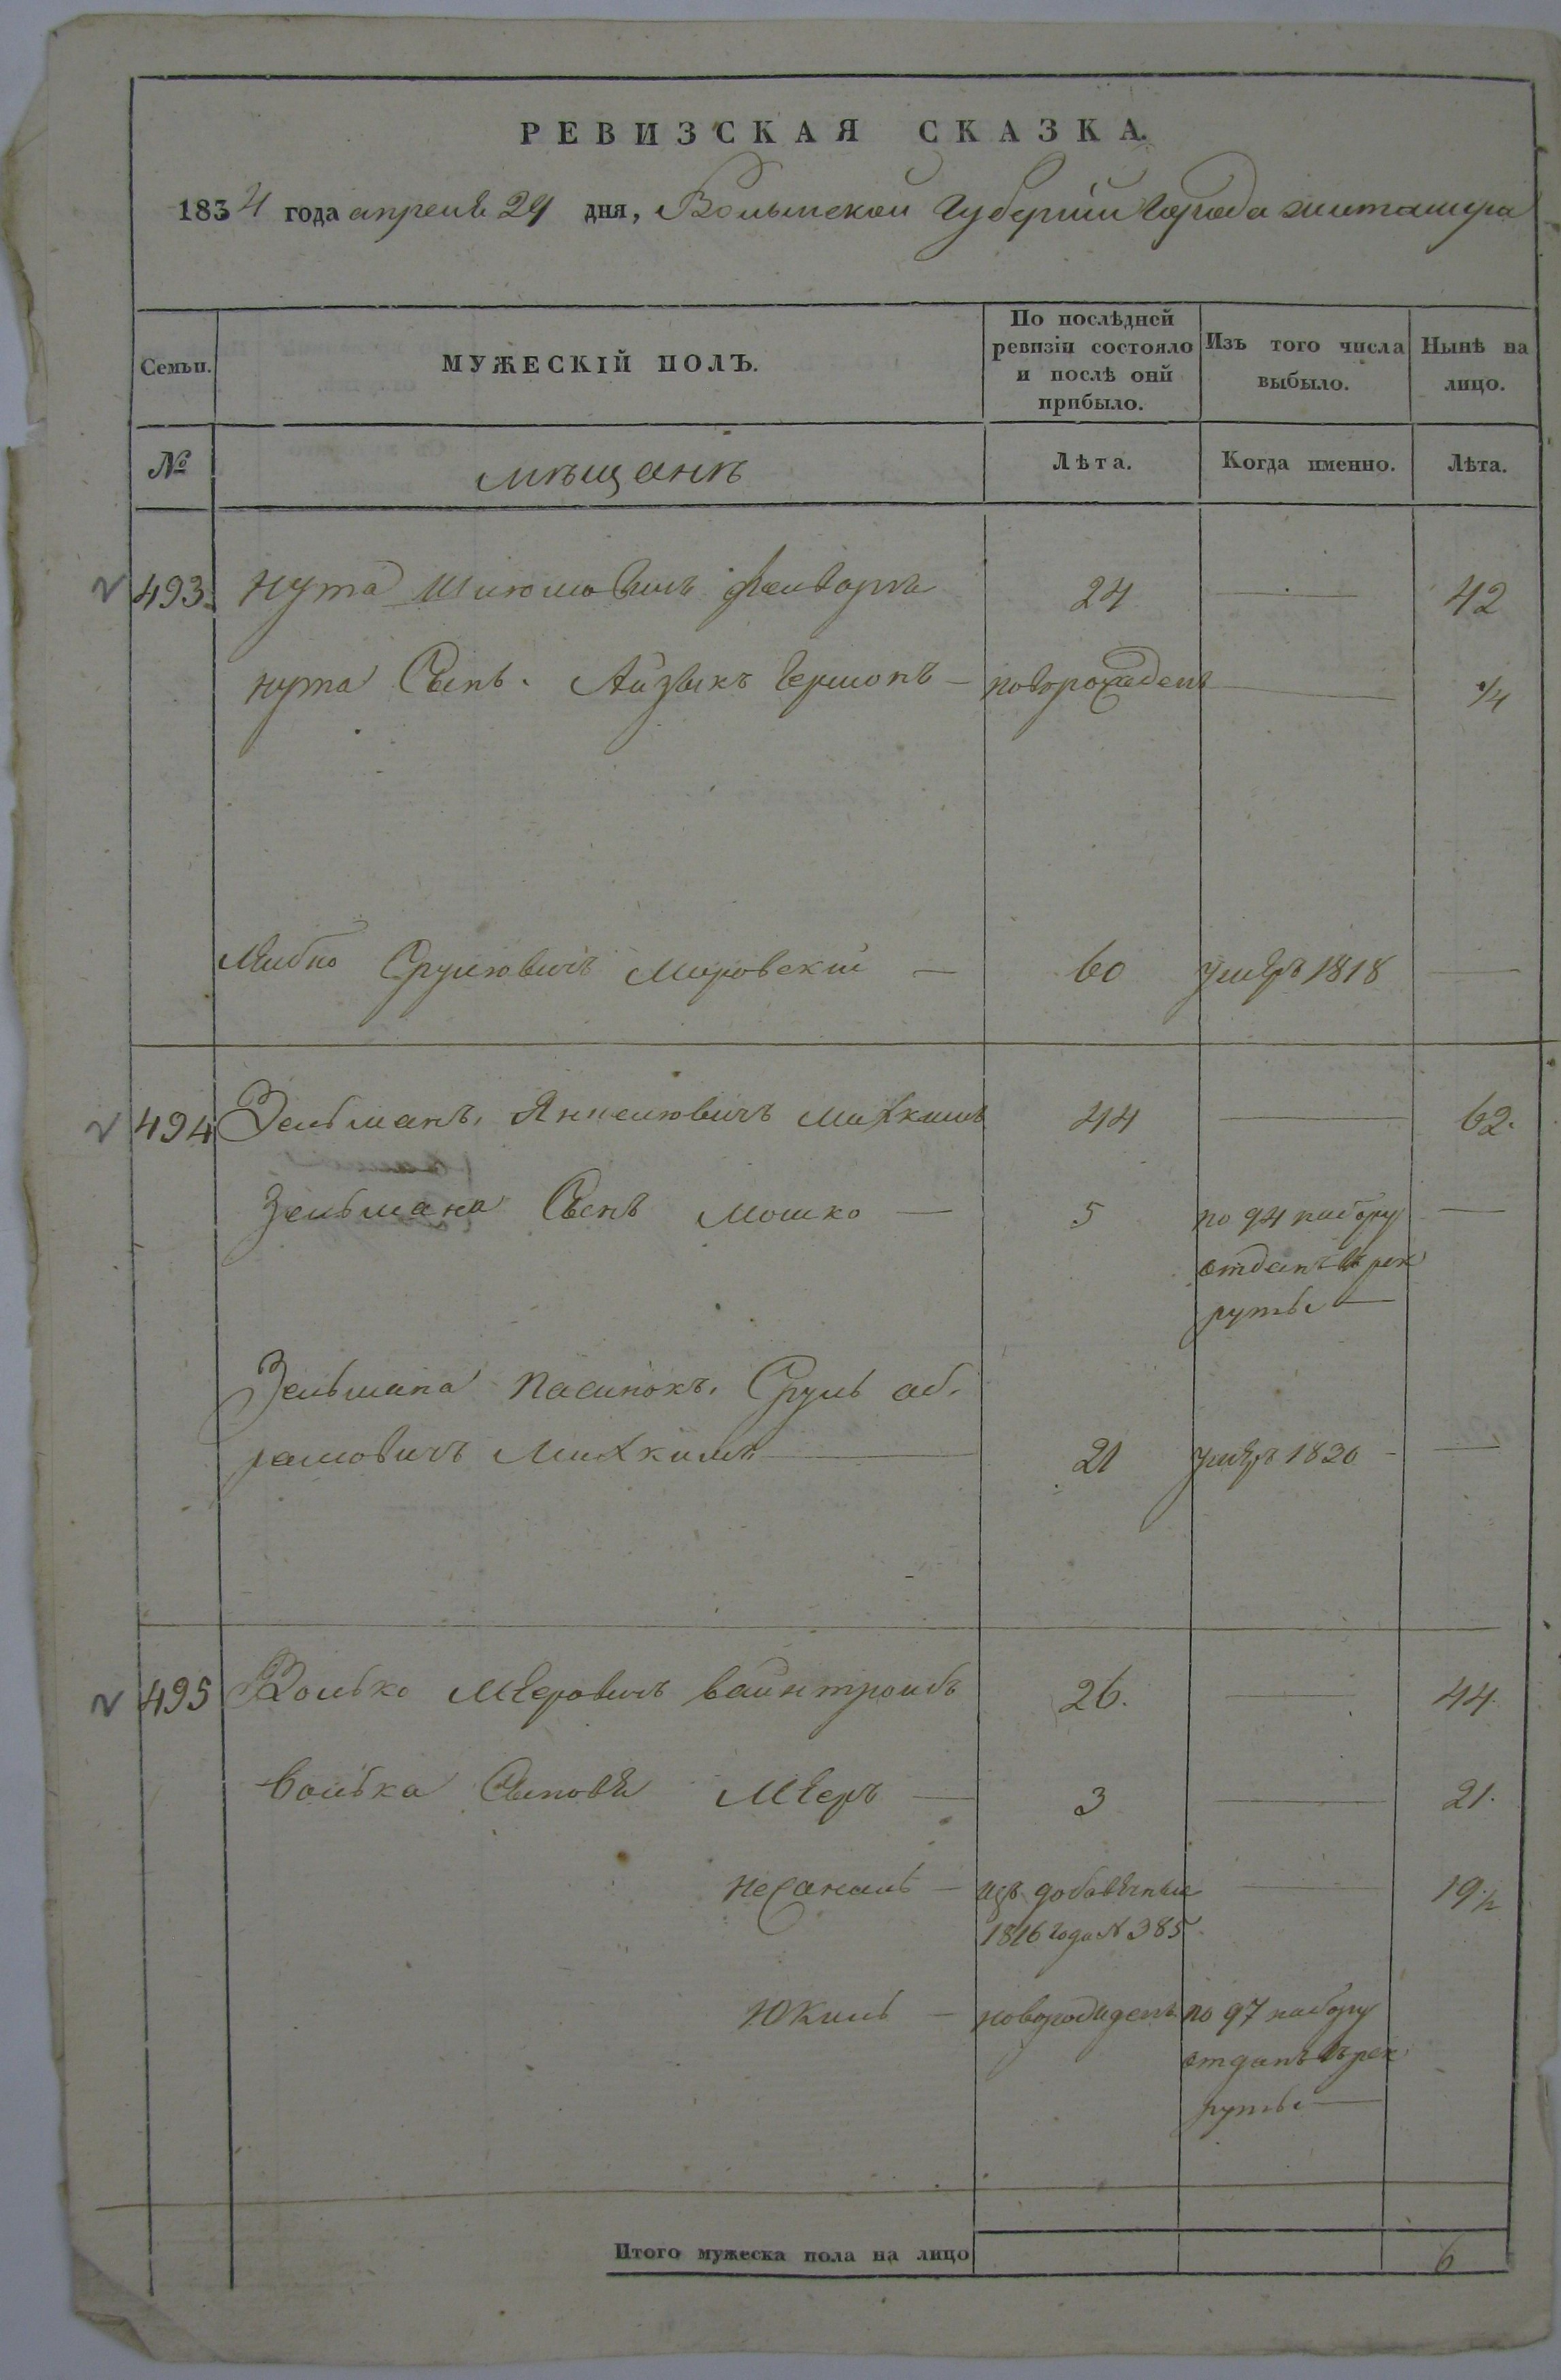 РЕВИЗСКАЯ СКАЗКА.
1834 года апреля 29 дня, Волынской Губернии Города житомира
Семьи.
МУЖЕСКІЙ ПОЛЪ.
По послѣдней ревизіи состояло и послѣ оній прибыло.
Изъ того числа выбыло.
Нынѣ на лицо.
№
мѣщанъ
Лѣта.
Когда именно.
Лѣта.
493. Нута Шлюмовичъ 24 — 42
нута Сынъ. Айзыкъ Гершонъ — новорожденъ — 1/4
Лейбко Срулювичъ Мировскій — 60 умеръ 1818 —
494 Зельманъ, Янкелювичъ 44 — 62.
Зельмана Сынъ Мошко — 5 по 94 набору —
отданъ въ рек
руты —
Зельмана пасинокъ, Сруль аб,
рамовичъ — 21 умеръ 1830 — —
495 Волько Меровичъ вайнтроибъ 26. — 44.
волька Сыновя Меръ — 3 — 21.
Неханиль — изъ добавочныи — 19 1/2
1816 года № 385
Юкиль — новорожденъ по 97 набору
отданъ въ рек
руты —
Итого мужеска пола на лицо 6